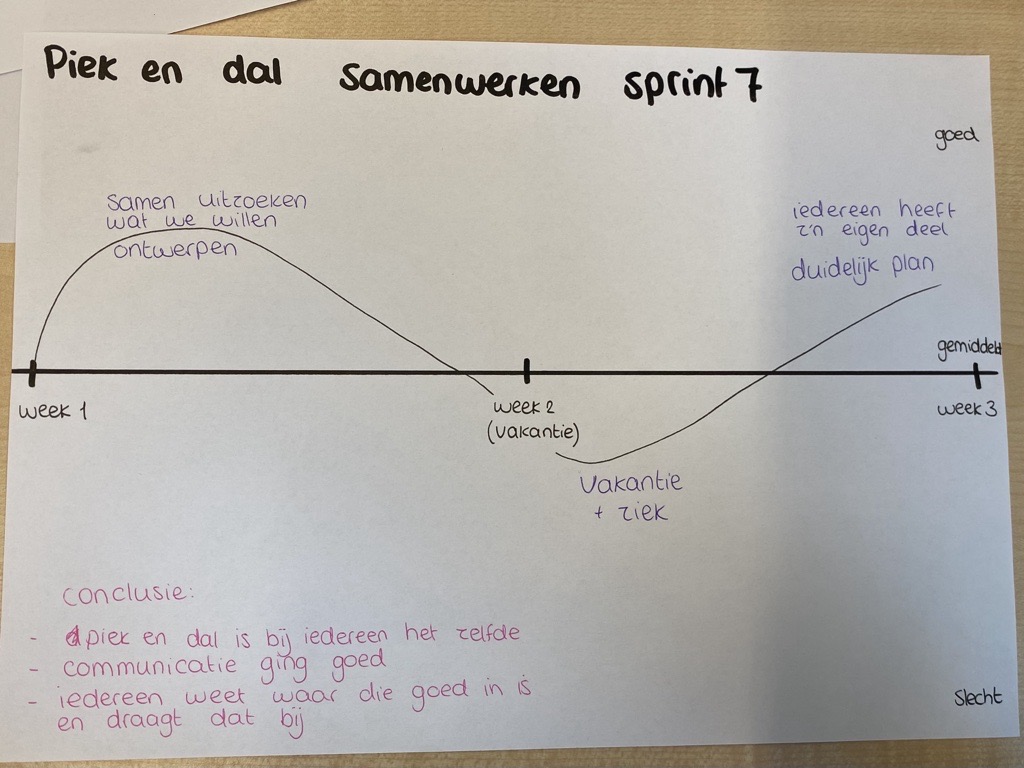 Piek en dal samenwerken sprint 7
goed
samen uitzoeken
wat we willen
ontwerpen
iedereen heeft
z'n eigen deel
duidelijk plan
gemiddeld
week 1
week 2
(vakantie)
week 3
vakantie
+ ziek
conclusie:
- piek en dal is bij iedereen het zelfde
- communicatie ging goed
- iedereen weet waar die goed in is
en draagt dat bij
slecht